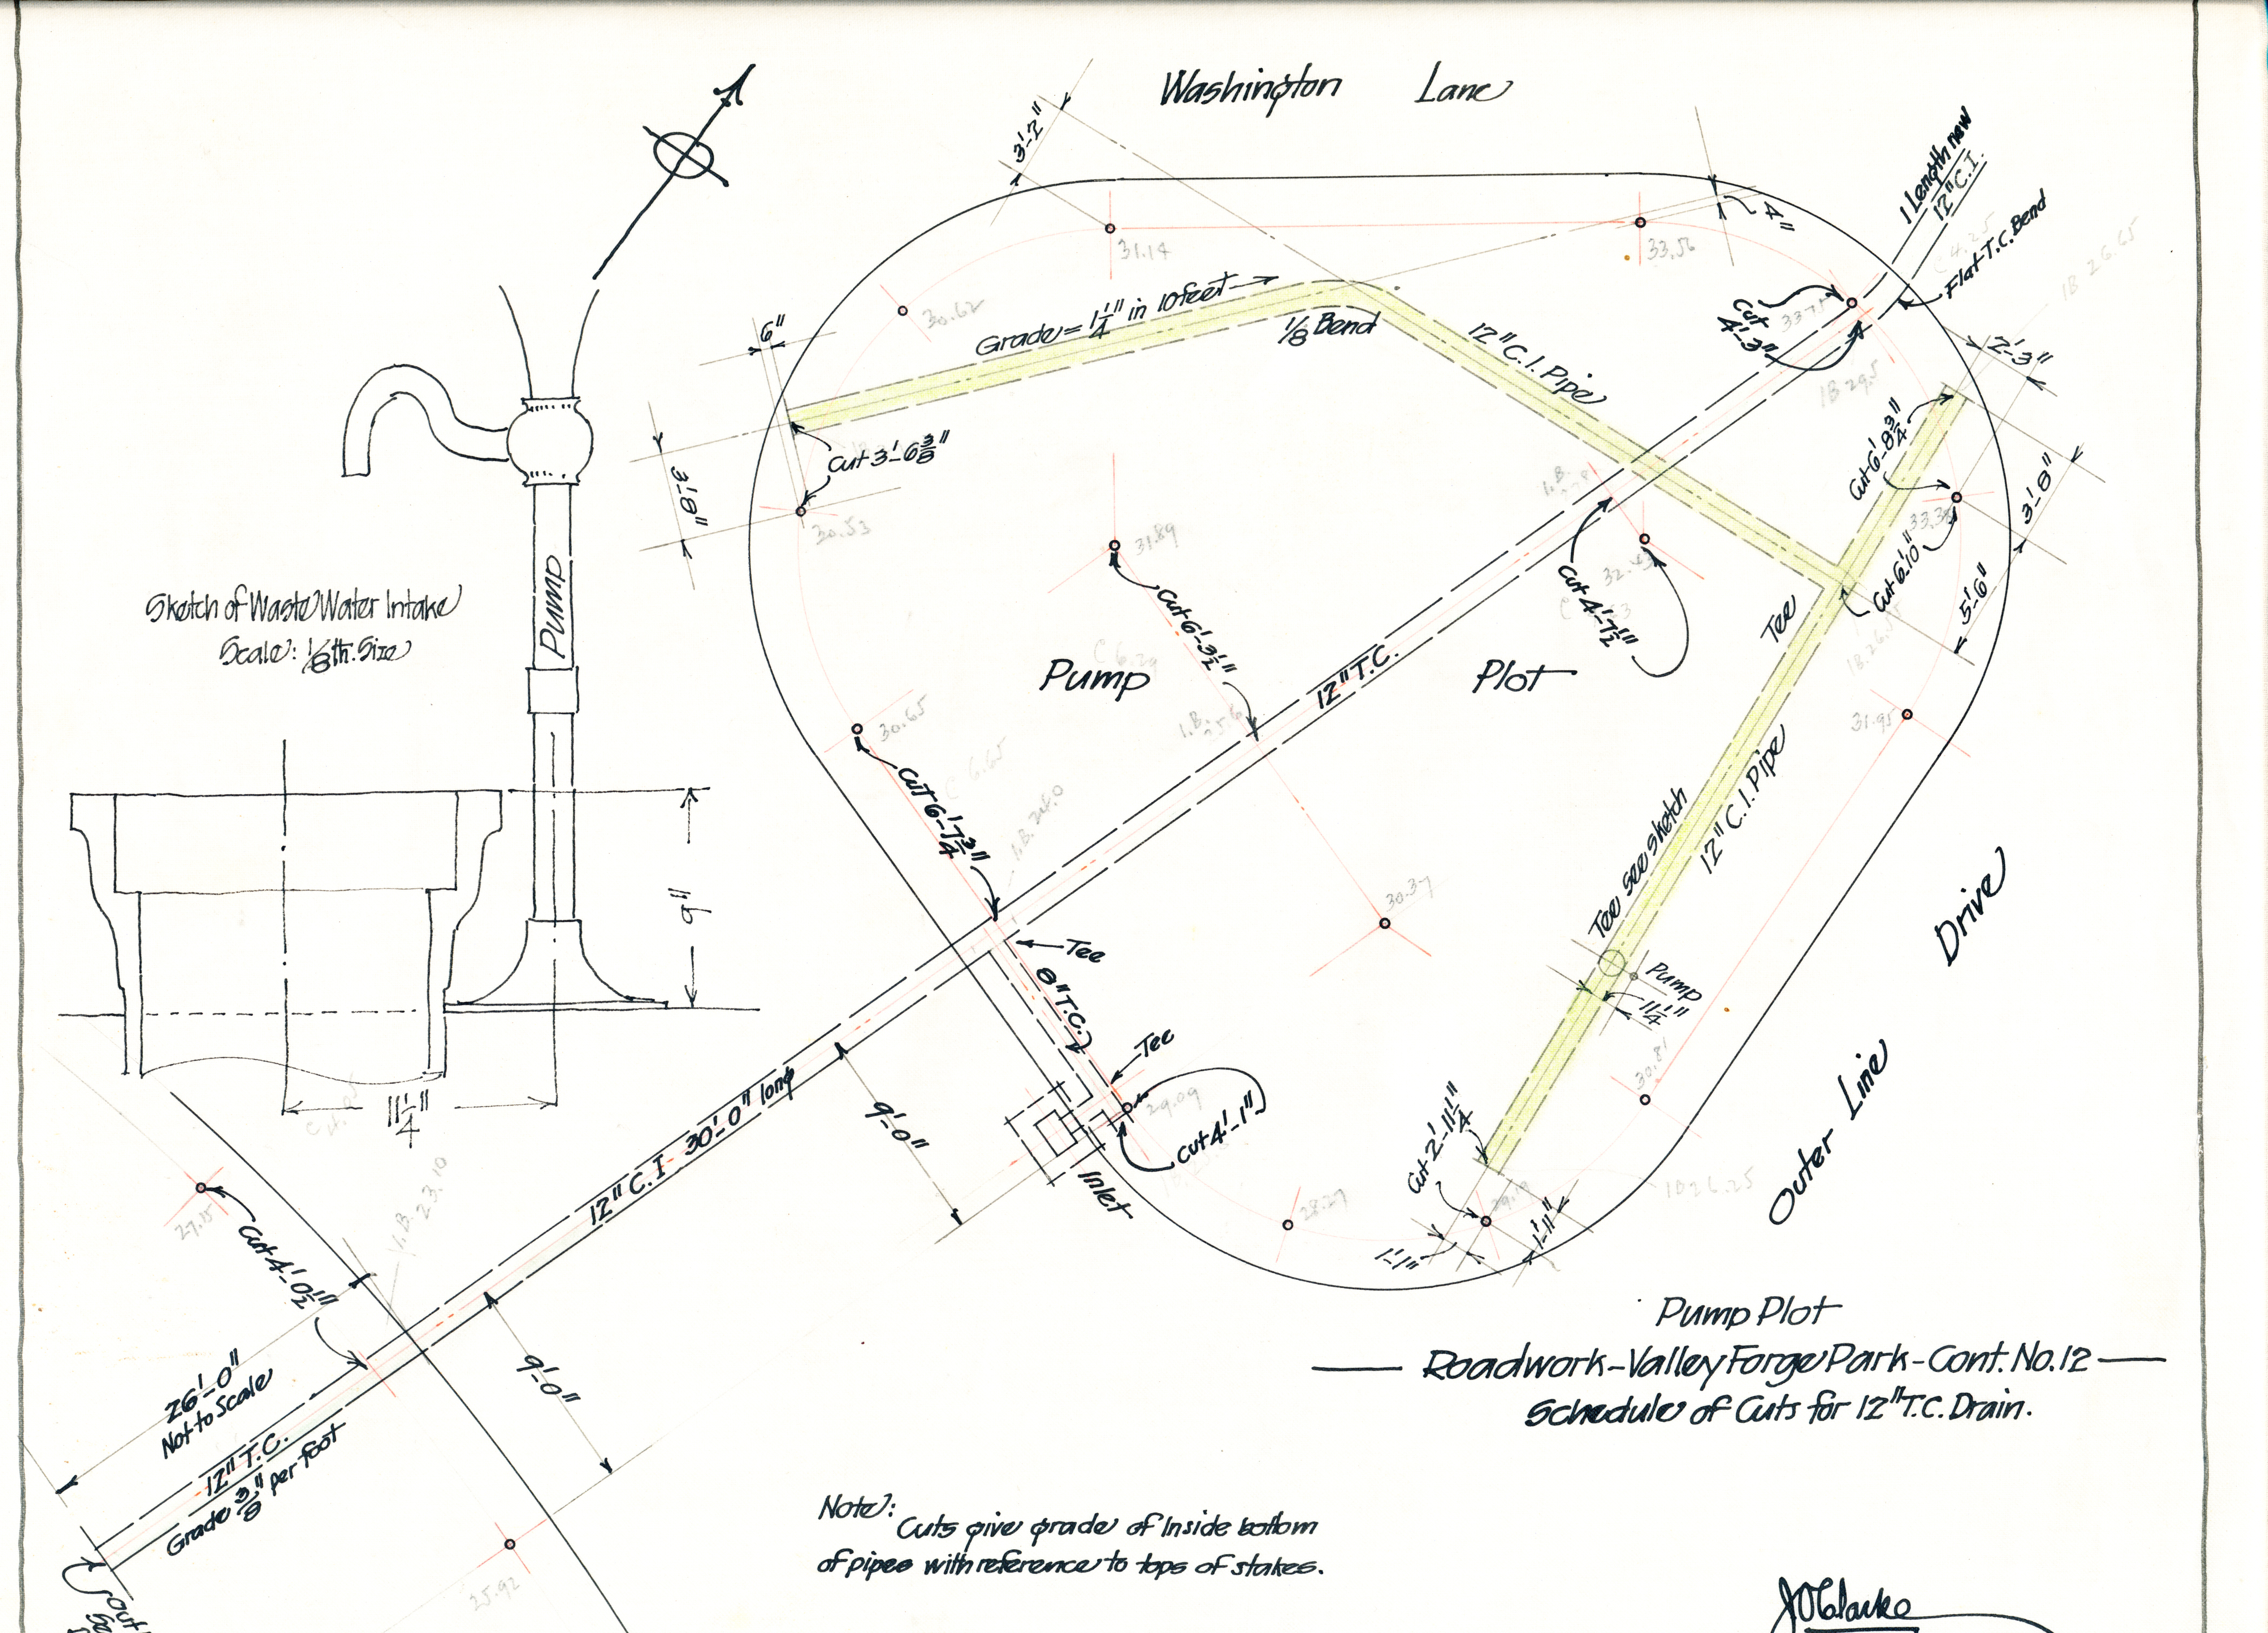 Washington Lane
3'-2"
4"
1 Length new
12" C.I.
Flat T.C. Bend
31.14
33.56
30.62
6"
Grade = 1 1/4" in 10 feet
1/8 Bend
12" C.I. Pipe
Cut
4'-3"
2'-3"
Cut 6'-8 3/4"
3'-8"
Cut 3'-6 3/8"
3'-8"
30.53
31.89
Cut 4'-7 1/2"
Cut 6'-10"
5'-6"
Pump
Sketch of Waste Water Intake
Scale: 1/8th. Size
Cut 6'-3 1/2"
Tee
Pump Plot
12" T.C.
30.65
31.95
Cut 6'-7 3/4"
12" C.I. Pipe
Tee see sketch
9"
30.37
Tee
8" T.C.
Pump
11 1/4"
Drive
Outer Line
Tee
29.09
Cut 4'-1"
30.81
11 1/4"
12" C.I. 30'-0" long
9'-0"
Inlet
Cut 2'-11 1/4"
28.27
1'-11"
1'-1"
1B 26.25
27.15
Cut 4'-0 1/2"
1.B. 23.10
26'-0"
Not to Scale
9'-0"
12" T.C.
Grade 3/8" per foot
25.92
Pump Plot
Roadwork-Valley Forge Park-Cont. No. 12
Schedule of Cuts for 12" T.C. Drain.
Note:
Cuts give grade of Inside bottom
of pipes with reference to tops of stakes.
J O Clarke